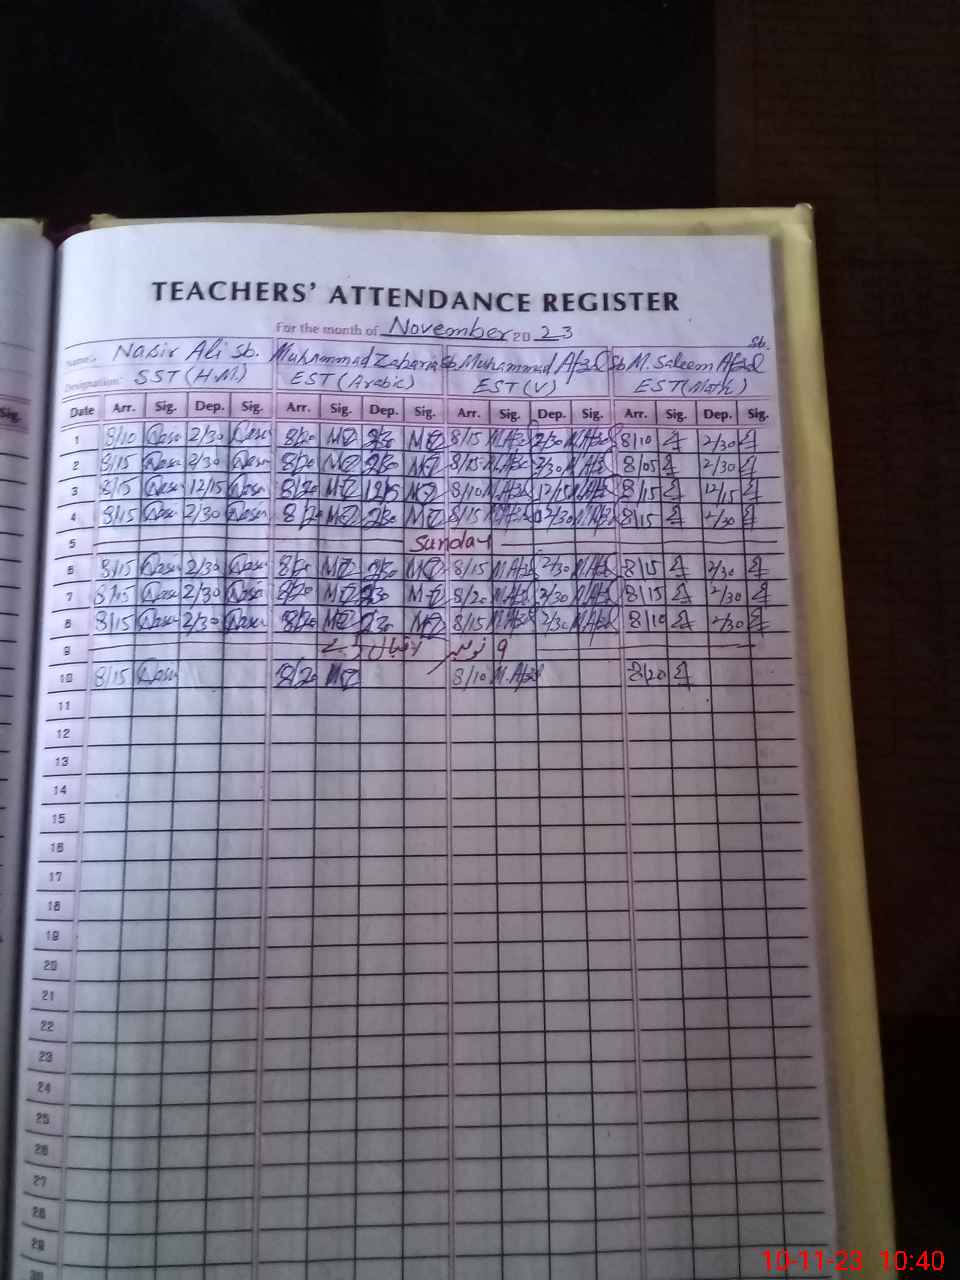 TEACHERS' ATTENDANCE REGISTER
For the month of November 2023
Name: Nasir Ali Sb. Muhammad Zakaria Sb. Muhammad Afzal Sb M. Saleem Afzal Sb.
Designation: SST (H.M.) EST (Arabic) EST (V) EST (Math)
Sig.
Date Arr. Sig. Dep. Sig. Arr. Sig. Dep. Sig. Arr. Sig. Dep. Sig. Arr. Sig. Dep. Sig.
1 8/10 2/30 8/20 MZ 2/30 MZ 8/15 M.Afzal 2/30 M.Afzal 8/10 2/30
2 8/15 2/30 8/20 MZ 2/30 MZ 8/15 M.Afzal 2/30 M.Afzal 8/05 2/30
3 8/15 12/15 8/20 MZ 12/15 MZ 8/10 M.Afzal 12/15 M.Afzal 8/15 12/15
4 8/15 2/30 8/20 MZ 2/30 MZ 8/15 M.Afzal 2/30 M.Afzal 8/15 2/30
5 Sunday
6 8/15 2/30 8/20 MZ 2/30 MZ 8/15 M.Afzal 2/30 M.Afzal 8/15 2/30
7 8/15 2/30 8/20 MZ 2/30 MZ 8/20 M.Afzal 2/30 M.Afzal 8/15 2/30
8 8/15 2/30 8/20 MZ 2/30 MZ 8/15 M.Afzal 2/30 M.Afzal 8/10 2/30
9 ۹ نومبر اقبال ڈے
10 8/15 8/20 MZ 8/10 M.Afzal 8/20
11
12
13
14
15
16
17
18
19
20
21
22
23
24
25
26
27
28
29
30
10-11-23 10:40